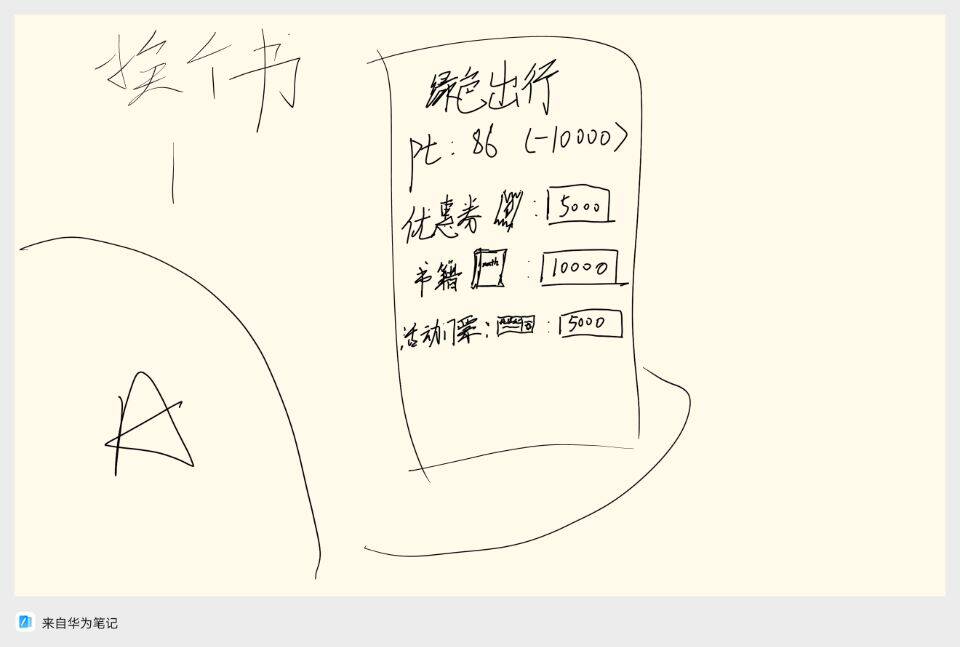 换个书
绿色出行
Pt: 86 (-10000)
优惠券 : 5000
书籍 math : 10000
活动门票: : 5000
A
来自华为笔记